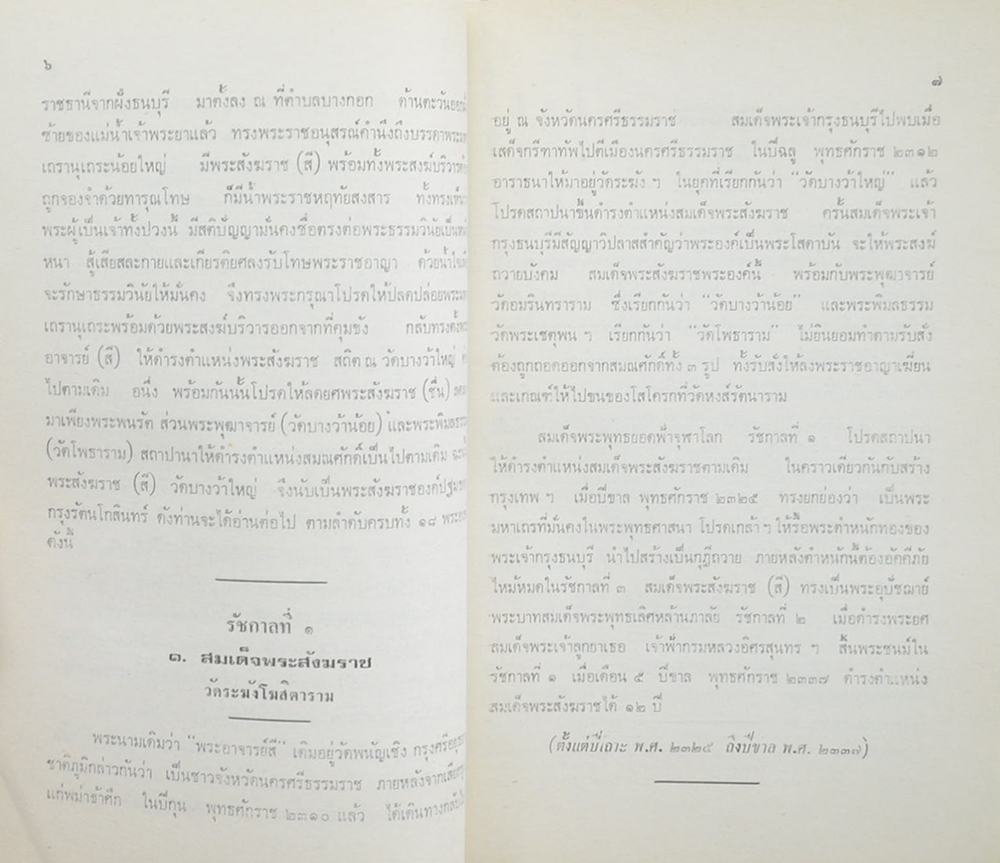 ๖
ราชธานีจากฝั่งธนบุรี มาตั้งลง ณ ที่ตำบลบางกอก ด้านตะวันออก
ซ้ายของแม่น้ำเจ้าพระยาแล้ว ทรงพระราชอนุสรณ์คำนึงถึงบรรดาพระ
เถรานุเถระน้อยใหญ่ มีพระสังฆราช (สี) พร้อมทั้งพระสงฆ์บริวาร
ถูกจองจำด้วยทารุณโทษ ก็มีน้ำพระราชหฤทัยสงสาร
พระผู้เป็นเจ้าทั้งปวงนี้ มีสติปัญญามั่นคงซื่อตรงต่อพระธรรมวินัย
หนา สู้เสียสละกายและเกียรติยศลงรับโทษพระราชอาญา
จะรักษาธรรมวินัยให้มั่นคง จึงทรงพระกรุณาโปรดให้ปลดปล่อย
เถรานุเถระพร้อมด้วยพระสงฆ์บริวารออกจากที่คุมขัง กลับทรงตั้ง
อาจารย์ (สี) ให้ดำรงตำแหน่งพระสังฆราช สถิต ณ วัดบางว้าใหญ่
ไปตามเดิม อนึ่ง พร้อมกันนั้นโปรดให้ลดยศพระสังฆราช (ชื่น)
มาเพียงพระพนรัต ส่วนพระพุฒาจารย์ (วัดบางว้าน้อย) และพระพิมลธรรม
(วัดโพธาราม) สถาปนาให้ดำรงตำแหน่งสมณศักดิ์เป็นไปตามเดิม
พระสังฆราช (สี) วัดบางว้าใหญ่ จึงนับเป็นพระสังฆราชองค์ปฐม
กรุงรัตนโกสินทร์ ดังท่านจะได้อ่านต่อไป ตามลำดับครบทั้ง ๑๘
ดังนี้
รัชกาลที่ ๑
๑. สมเด็จพระสังฆราช
วัดระฆังโฆสิตาราม
พระนามเดิมว่า “พระอาจารย์สี” เดิมอยู่วัดพนัญเชิง
ชาติภูมิกล่าวกันว่า เป็นชาวจังหวัดนครศรีธรรมราช ภายหลังจาก
แก่พม่าข้าศึก ในปีกุน พุทธศักราช ๒๓๑๐ แล้ว ได้เดินทาง
๗
อยู่ ณ จังหวัดนครศรีธรรมราช สมเด็จพระเจ้ากรุงธนบุรีไปพบเมื่อ
เสด็จกรีฑาทัพไปตีเมืองนครศรีธรรมราช ในปีฉลู พุทธศักราช ๒๓๑๒
อาราธนาให้มาอยู่วัดระฆัง ฯ ในยุคที่เรียกกันว่า “วัดบางว้าใหญ่” แล้ว
โปรดสถาปนาขึ้นดำรงตำแหน่งสมเด็จพระสังฆราช ครั้นสมเด็จพระเจ้า
กรุงธนบุรีมีสัญญาวิปลาสสำคัญว่าพระองค์เป็นพระโสดาบัน จะให้พระสงฆ์
ถวายบังคม สมเด็จพระสังฆราชพระองค์นี้ พร้อมกับพระพุฒาจารย์
วัดอมรินทราราม ซึ่งเรียกกันว่า “วัดบางว้าน้อย” และพระพิมลธรรม
วัดพระเชตุพน ฯ เรียกกันว่า “วัดโพธาราม” ไม่ยินยอมทำตามรับสั่ง
ต้องถูกถอดออกจากสมณศักดิ์ทั้ง ๓ รูป ทั้งรับสั่งให้ลงพระราชอาญาเฆี่ยน
และเกณฑ์ให้ไปขนของโสโครกที่วัดหงส์รัตนาราม
สมเด็จพระพุทธยอดฟ้าจุฬาโลก รัชกาลที่ ๑ โปรดสถาปนา
ให้ดำรงตำแหน่งสมเด็จพระสังฆราชตามเดิม ในคราวเดียวกันกับสร้าง
กรุงเทพ ฯ เมื่อปีขาล พุทธศักราช ๒๓๒๕ ทรงยกย่องว่า เป็นพระ
มหาเถรที่มั่นคงในพระพุทธศาสนา โปรดเกล้า ฯ ให้รื้อพระตำหนักทองของ
พระเจ้ากรุงธนบุรี นำไปสร้างเป็นกุฏิถวาย ภายหลังตำหนักนี้ต้องอัคคีภัย
ไหม้หมดในรัชกาลที่ ๓ สมเด็จพระสังฆราช (สี) ทรงเป็นพระอุปัชฌาย์
พระบาทสมเด็จพระพุทธเลิศหล้านภาลัย รัชกาลที่ ๒ เมื่อดำรงพระยศ
สมเด็จพระเจ้าลูกยาเธอ เจ้าฟ้ากรมหลวงอิศรสุนทร ฯ สิ้นพระชนม์ใน
รัชกาลที่ ๑ เมื่อเดือน ๕ ปีขาล พุทธศักราช ๒๓๓๗ ดำรงตำแหน่ง
สมเด็จพระสังฆราชได้ ๑๒ ปี
(ตั้งแต่ปีเถาะ พ.ศ. ๒๓๒๕ ถึงปีขาล พ.ศ. ๒๓๓๗)